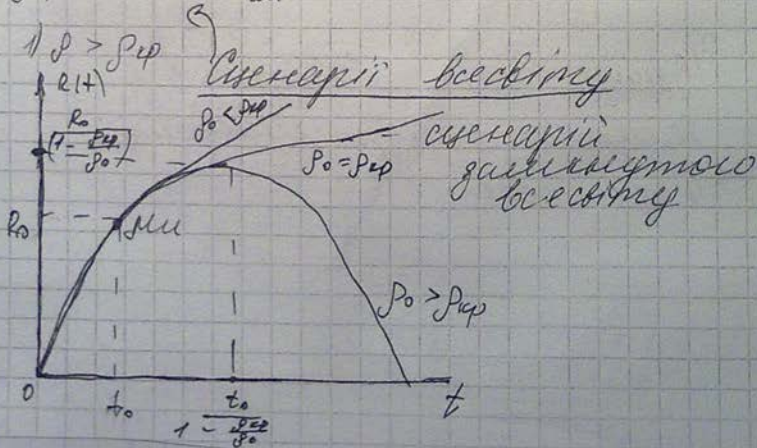 1) ρ > ρкр
R(t)
Сценарії всесвіту
R₀
(1 - ρкр/ρ₀)
ρ₀ < ρкр
ρ₀ = ρкр
сценарій
замкнутого
всесвіту
R₀
ми
ρ₀ > ρкр
0
t₀
t₀
1 - ρкр/ρ₀
t